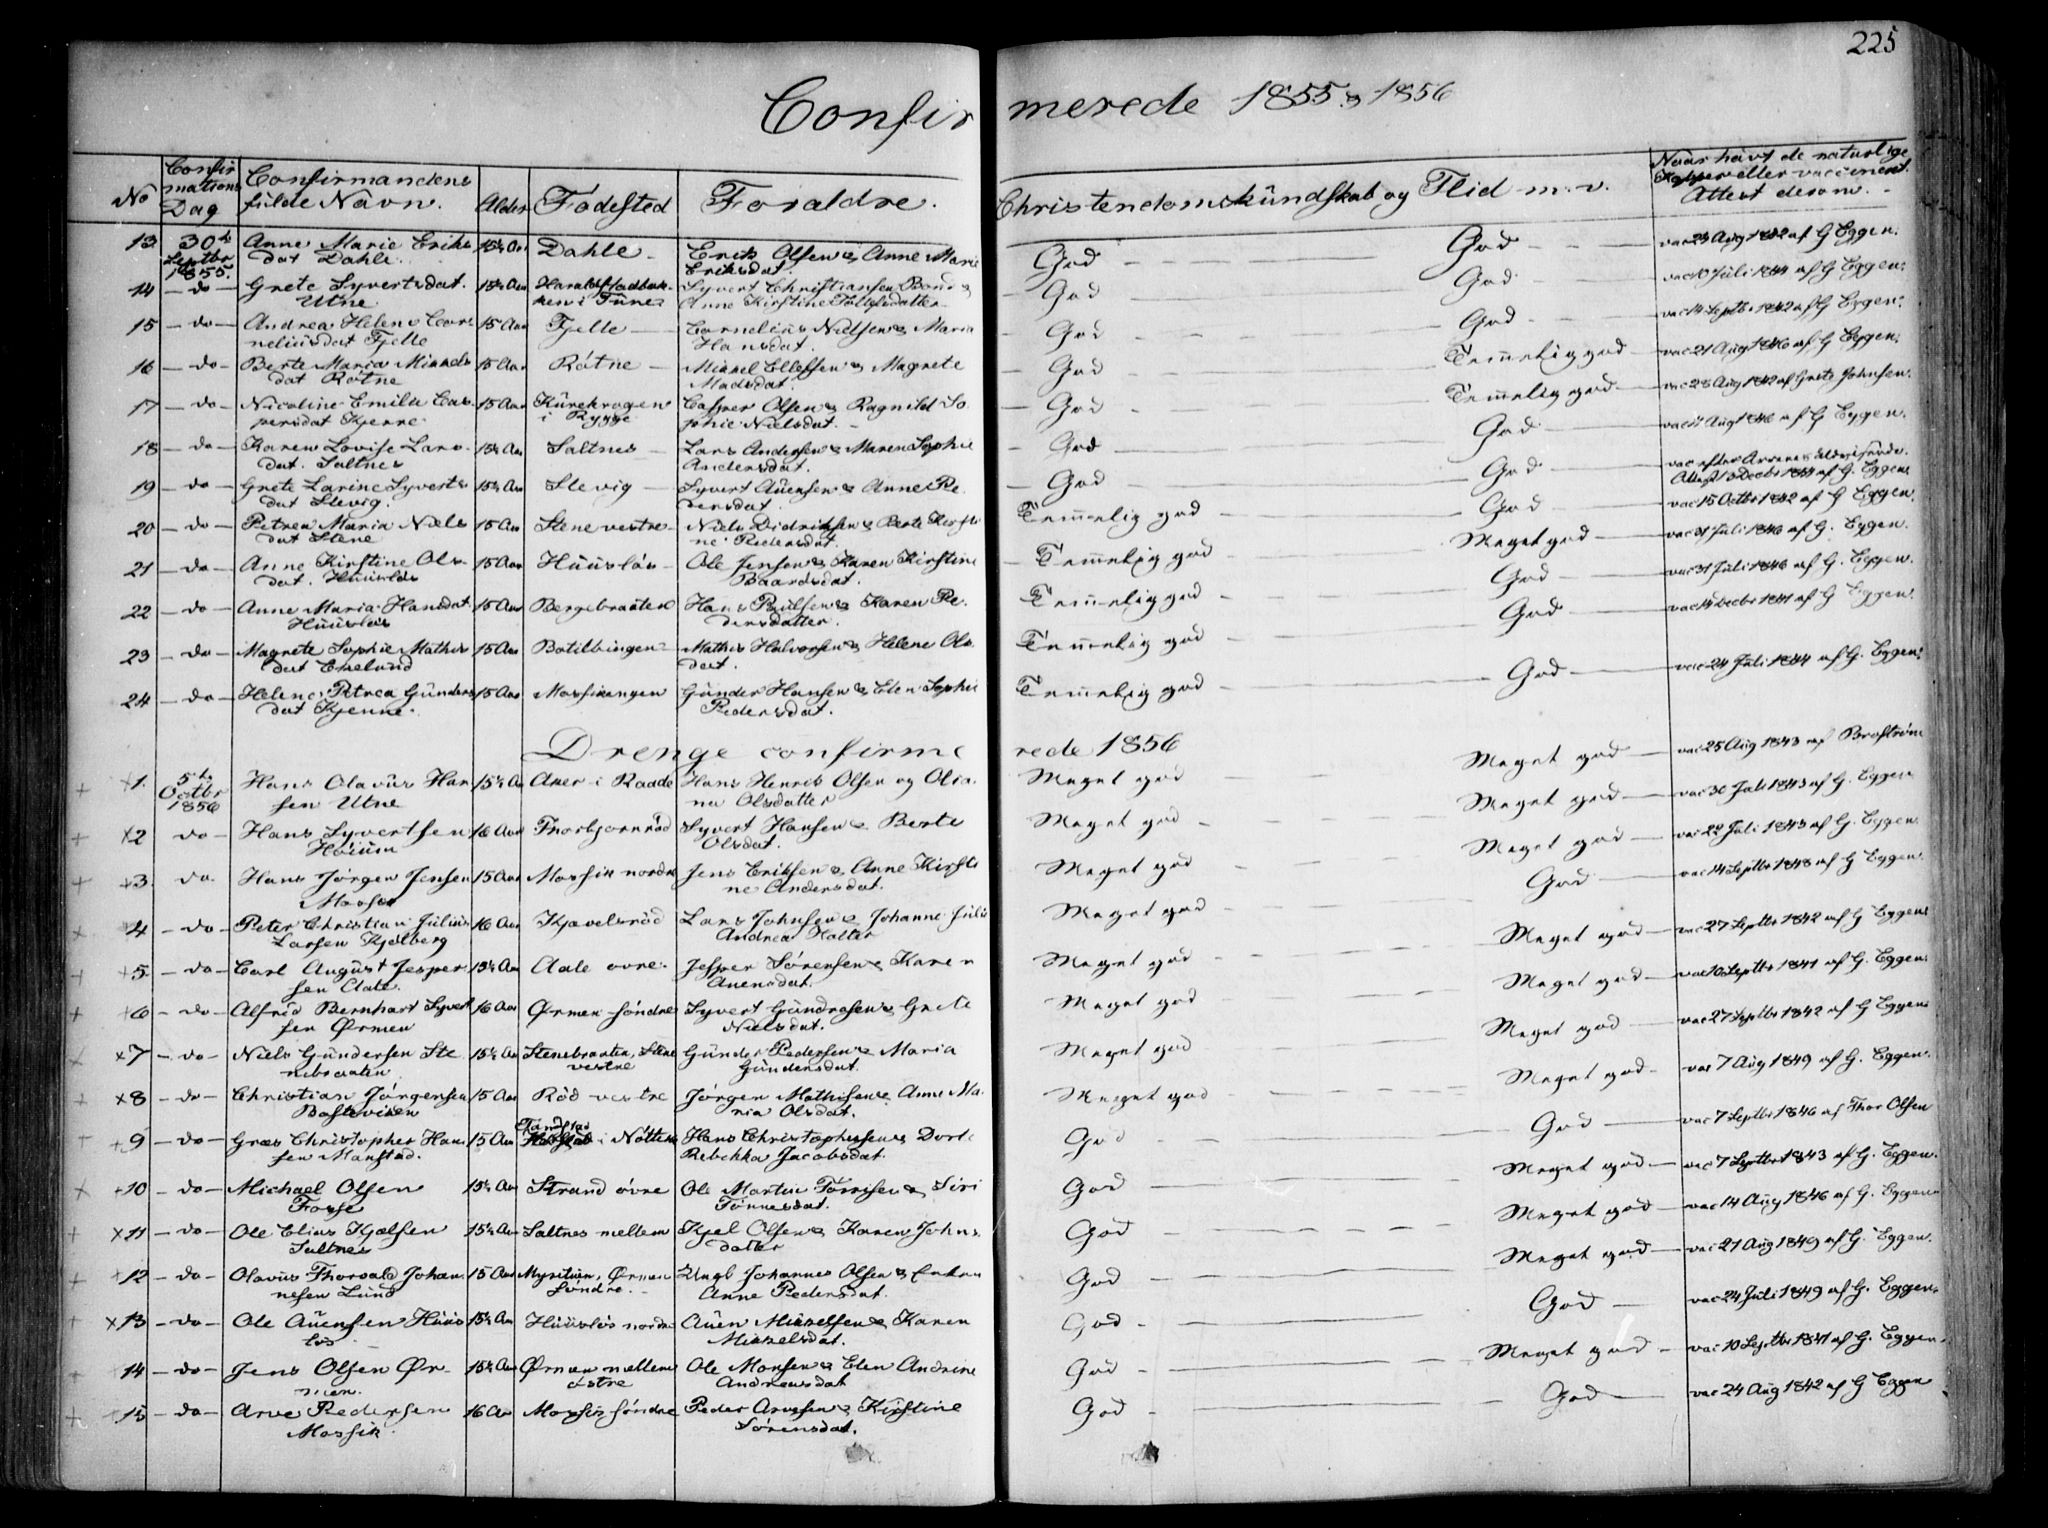 225
Confirmerede 1855 & 1856
No Confirmations Dag Confirmandens fulde Navn. Alder Fødested Forældre. Christendomskundskab og Flid m. v. Naar havt de naturlige Kopper eller vaccineret. Attest derom.
13 30te Septbr 1855. Anne Marie Eriksdat Dahle. 15½ Aar Dahle Erik Olsen & Anne Marie Eriksdat. God God vac 23 Aug 1842 af G Eggen.
14 do Grete Syvertsdat. Utne 15½ Aar i Tune Syvert Christiansen & Anne Kirstine God God vac 10 Juli 1844 af G Eggen.
15 do Andrea Helene Corneliusdat Fjelle 15 Aar Fjelle Cornelius Nielsen & Maria Hansdat. God God vac 14 Septbr 1842 af G Eggen.
16 do Berte Maria Mikkelsdat Rötne 15 Aar Rötne Mikkel Ellefsen & Magrete Madsdat. God Temmelig god vac 21 Aug 1846 af G Eggen.
17 do Nicoline Emilie Caspersdat Kjenne 15 Aar Kurekrogen i Rygge Casper Olsen & Ragnild Sophie Nielsdat. God Temmelig god vac 28 Aug 1842 af Grete Johnsen.
18 do Karen Lovise Larsdat. Saltnes 15½ Aar Saltnes Lars Andersen & Maren Sophie Andersdat. God God vac 11 Aug 1846 af G Eggen.
19 do Grete Larine Syvertsdat Slevig. 15½ Aar Slevig Syvert Auensen & Anne Pedersdat. God God vac efter Attest 13 Decbr 1854 af G. Eggen
20 do Petrea Maria Nielsdat Stene 15 Aar Stene vestre Niels Didriksen & Berte Kirstine Pedersdat. Temmelig god God vac 15 Octbr 1842 af G Eggen.
21 do Anne Kirstine Olsdat. Huuslös 15 Aar Huuslös Ole Jensen & Karen Kirstine Baardsdat. Temmelig god Meget god vac 31 Juli 1846 af G. Eggen.
22 do Anne Maria Hansdat Huuslös 15 Aar Bergebraaten Hans Paulsen & Karen Pedersdatter. Temmelig god God vac 31 Juli 1846 af G. Eggen.
23 do Magrete Sophie Mathisdat Ekelund 15 Aar Botilbingen Mathis Halvorsen & Helene Olsdat. Temmelig god God vac 14 Decbr 1841 af G Eggen.
24 do Helene Petrea Gundersdat Kjenne. 15 Aar Mossikengen Gunder Hansen & Elen Sophie Pedersdat. Temmelig god God vac 24 Juli 1844 af G. Eggen.
Drenge confirmerede 1856
1. 5te Octbr 1856 Hans Olavus Hansen Utne 15½ Aar Aker i Raade Hans Henrik Olsen og Oliana Olsdatter Meget god Meget god vac 25 Aug 1843 af Broström
2 do Hans Syvertsen Höium 16 Aar Thorbjörnröd Syvert Hansen & Berte Olsdat. Meget god Meget god vac 30 Juli 1843 af G. Eggen
3. do. Hans Jörgen Jensen Mossik 15 Aar Mossik nordre Jens Eriksen & Anne Kirstine Andersdat. Meget god Meget god vac 22 Juli 1843 af G. Eggen.
4 do Peter Christian Julius Larsen Kjölberg 16 Aar Kjævelsröd Lars Johnsen & Johanne Julie Andrea Holter Meget god God vac 14 Septbr 1848 af G Eggen.
5 do Carl August Jespersen Aale 15½ Aar Aale övre. Jesper Sörensen & Karen Auensdat. Meget god Meget god vac 27 Septbr 1842 af G Eggen
6 do Alfred Bernhart Syvertsen Ørmen 16 Aar Ørmen söndre Syvert Gundrosen & Grete Nielsdat. Meget god Meget god vac 10 Septbr 1841 af G. Eggen.
7 do Niels Gundersen Stenebraaten 15½ Aar Stenebraaten, Stene vestre Gunder Pedersen & Maria Gundersdat. Meget god Meget god vac 27 Septbr 1842 af G Eggen.
8 do Christian Jörgensen Bosteviken 15 Aar Röd vestre Jörgen Mathisen & Anne Maria Olsdat. Meget god Meget god vac 7 Aug 1849 af G. Eggen.
9 do Græs Christopher Hansen Manstad. 15 Aar i Nötterö Hans Christophersen & Dorte Rebekka Jacobsdat. God God vac 7 Septbr 1846 af Thor Olsen
10 do Michael Olsen Fosse 15½ Aar Strand övre Ole Martin Torrisen & Siri Tönnesdat. God Meget god vac 7 Septbr 1843 af G. Eggen.
11 do Ole Elias Kjælsen Saltnes 15½ Aar Saltnes mellem Kjel Olsen & Karen Johnsdatter God Meget god vac 14 Aug 1846 af G. Eggen
12 do Olavus Thorvald Johannesen Lund 15 Aar Myrituen, Ørmen Söndre. Ungk Johannes Olsen & Enken Anne Pedersdat. God Meget god vac 21 Aug 1849 af G. Eggen.
13 do Ole Auensen Huuslös 15½ Aar Huuslös nordre Auen Mikkelsen & Karen Mikkelsdat. God God vac 24 Juli 1849 af G. Eggen.
14 do Jens Olsen Ørmen. 15½ Aar Ørmen mellem östre Ole Monsen & Elen Andrine Andreasdat God Meget god vac 10 Septbr 1841 af G. Eggen.
15 do Arve Pedersen Mossik. 16 Aar Mossik söndre Peder Arvesen & Kirstine Sörensdat. God God vac 24 Aug 1842 af G Eggen